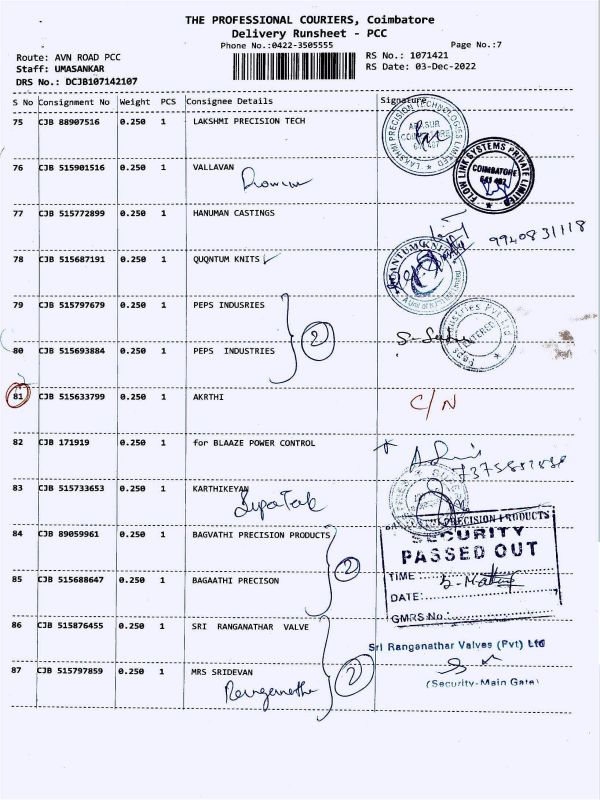 THE PROFESSIONAL COURIERS, Coimbatore
Delivery Runsheet - PCC
Phone No.:0422-3505555
Page No.:7
Route: AVN ROAD PCC
RS No.: 1071421
Staff: UMASANKAR
RS Date: 03-Dec-2022
DRS No.: DCJB107142107
S No Consignment No Weight PCS Consignee Details Signature
75 CJB 88907516 0.250 1 LAKSHMI PRECISION TECH
LAKSHMI PRECISION TECHNOLOGIES LIMITED
76 CJB 515901516 0.250 1 VALLAVAN
FLOW LINK SYSTEMS PRIVATE LIMITED
COIMBATORE
641 407
77 CJB 515772899 0.250 1 HANUMAN CASTINGS
9940831118
78 CJB 515687191 0.250 1 QUQNTUM KNITS
QUANTUM KNITS
79 CJB 515797679 0.250 1 PEPS INDUSRIES
2
80 CJB 515693884 0.250 1 PEPS INDUSTRIES
Peps Industries Pvt Ltd
ENTERED
81 CJB 515633799 0.250 1 AKRTHI
C/N
82 CJB 171919 0.250 1 for BLAAZE POWER CONTROL
83 CJB 515733653 0.250 1 KARTHIKEYAN
84 CJB 89059961 0.250 1 BAGVATHI PRECISION PRODUCTS
PRECISION PRODUCTS
SECURITY
PASSED OUT
2
TIME :
85 CJB 515688647 0.250 1 BAGAATHI PRECISON
DATE:
GMRS No.:
86 CJB 515876455 0.250 1 SRI RANGANATHAR VALVE
Sri Ranganathar Valves (Pvt) Ltd
87 CJB 515797859 0.250 1 MRS SRIDEVAN
2
(Security-Main Gate)